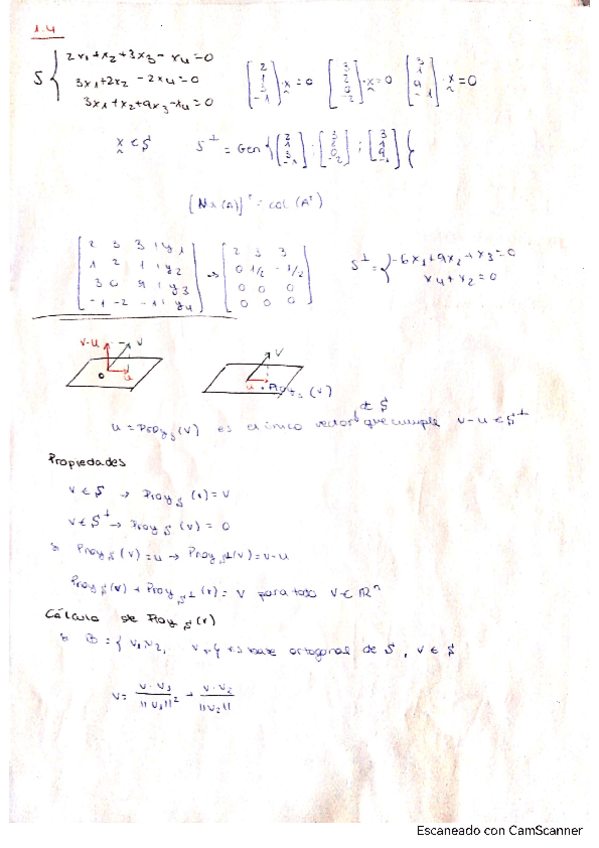 1.4
S { 2x₁+x₂+3x₃-x₄=0
3x₁+2x₂ -2x₄=0
3x₁+x₂+9x₃-x₄=0
[2 1 3 -1]·x=0 [3 2 0 -2]·x=0 [3 1 9 -1]·x=0
x ∈ S S^⊥ = Gen{[2 1 3 -1]; [3 2 0 -2]; [3 1 9 -1]}
[Nul(A)]^⊥ = col (A^T)
[2 3 3 | y₁ → [2 3 3
1 2 1 | y₂ 0 1/2 -1/2
3 0 9 | y₃ 0 0 0
-1 -2 -1 | y₄] 0 0 0]
S^⊥ = { -6x₁+9x₂+x₃=0
x₄+x₂=0
v-u v
0 u
v
u Proy_S (v)
∈ S
u = Proy_S(v) es el único vector que cumple v-u ∈ S^⊥
Propiedades
v ∈ S → Proy_S (v) = v
v ∈ S^⊥ → Proy_S (v) = 0
Proy_S (v) = u → Proy_S^⊥(v) = v-u
Proy_S(v) + Proy_S^⊥ (v) = v para todo v ∈ ℝⁿ
Cálculo de Proy_S(v)
B = { v₁, v₂, vᵣ} es base ortogonal de S, v ∈ S
v = v·v₁/||v₁||² + v·v₂/||v₂||
Escaneado con CamScanner